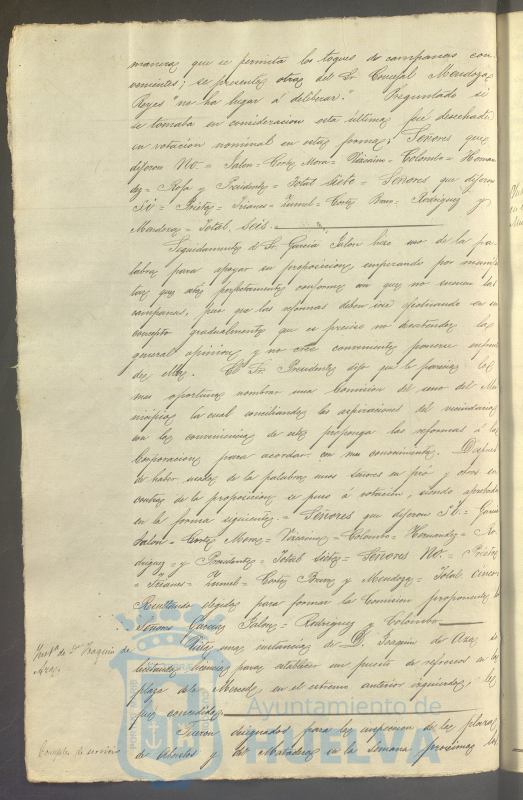 manera que se permita los toques de campanas con-
venientes; se presenta otra del Sr. Concejal Mendoza
Reyes "no ha lugar á deliberar." Preguntado si
se tomaba en consideracion esta última fué desechada
en votacion nominal en esta forma; Señores que
dijeron No. = Jalon = Cortes Mora = Vizcaino = Colombo = Hernan-
dez = Rofa y Presidente = Total siete = Señores que dijeron
Si = Prieto = Trianes = Zunnel = Cortes Bravo = Rodriguez y
Mendoza = Total, seis.
Seguidamente el Sr. Garcia Jalon hizo uso de la pa-
labra para apoyar su proposicion empezando por manifes-
tar que está completamente conforme con que no suenen las
campanas, pero que las reformas deben irse efectuando en su
concepto gradualmente que es preciso no desatender la
general opinion y no cree conveniente ponerse enfren-
te de ella. El Sr. Presidente dijo que le parecia lo
mas oportuno nombrar una Comision del seno del Mu-
nicipio la cual conciliando las aspiraciones del vecindario
con las conveniencias de este proponga las reformas á la
Corporacion para acordar con mas conocimiento. Despues
de haber usado de la palabra unos señores en pró y otros en
contra de la proposicion se puso á votacion, siendo aprobada
en la forma siguiente. = Señores que dijeron Si = Garcia
Jalon = Cortes Mora = Vizcaino = Colombo = Hernandez = Ro-
driguez = y Presidente = Total siete = Señores No. = Prieto
= Trianes = Zunnel = Cortes Bravo y Mendoza = Total cinco
Resultando elegidos para formar la Comision proponente los
Señores Garcia Jalon = Rodriguez y Colombo
Inst.ª de D. Joaquin de
Aza.
Vista una instancia de D. Joaquin de Aza so-
licitando licencia para establecer un puesto de refrescos en la
plaza de la Merced, en el extremo anterior izquierdo, le
fué concedida.
Concejales de servicio
Fueron designados para la inspeccion de la plaza
de Abastos y del Matadero en la semana proxima los
Ayuntamiento de
HUELVA